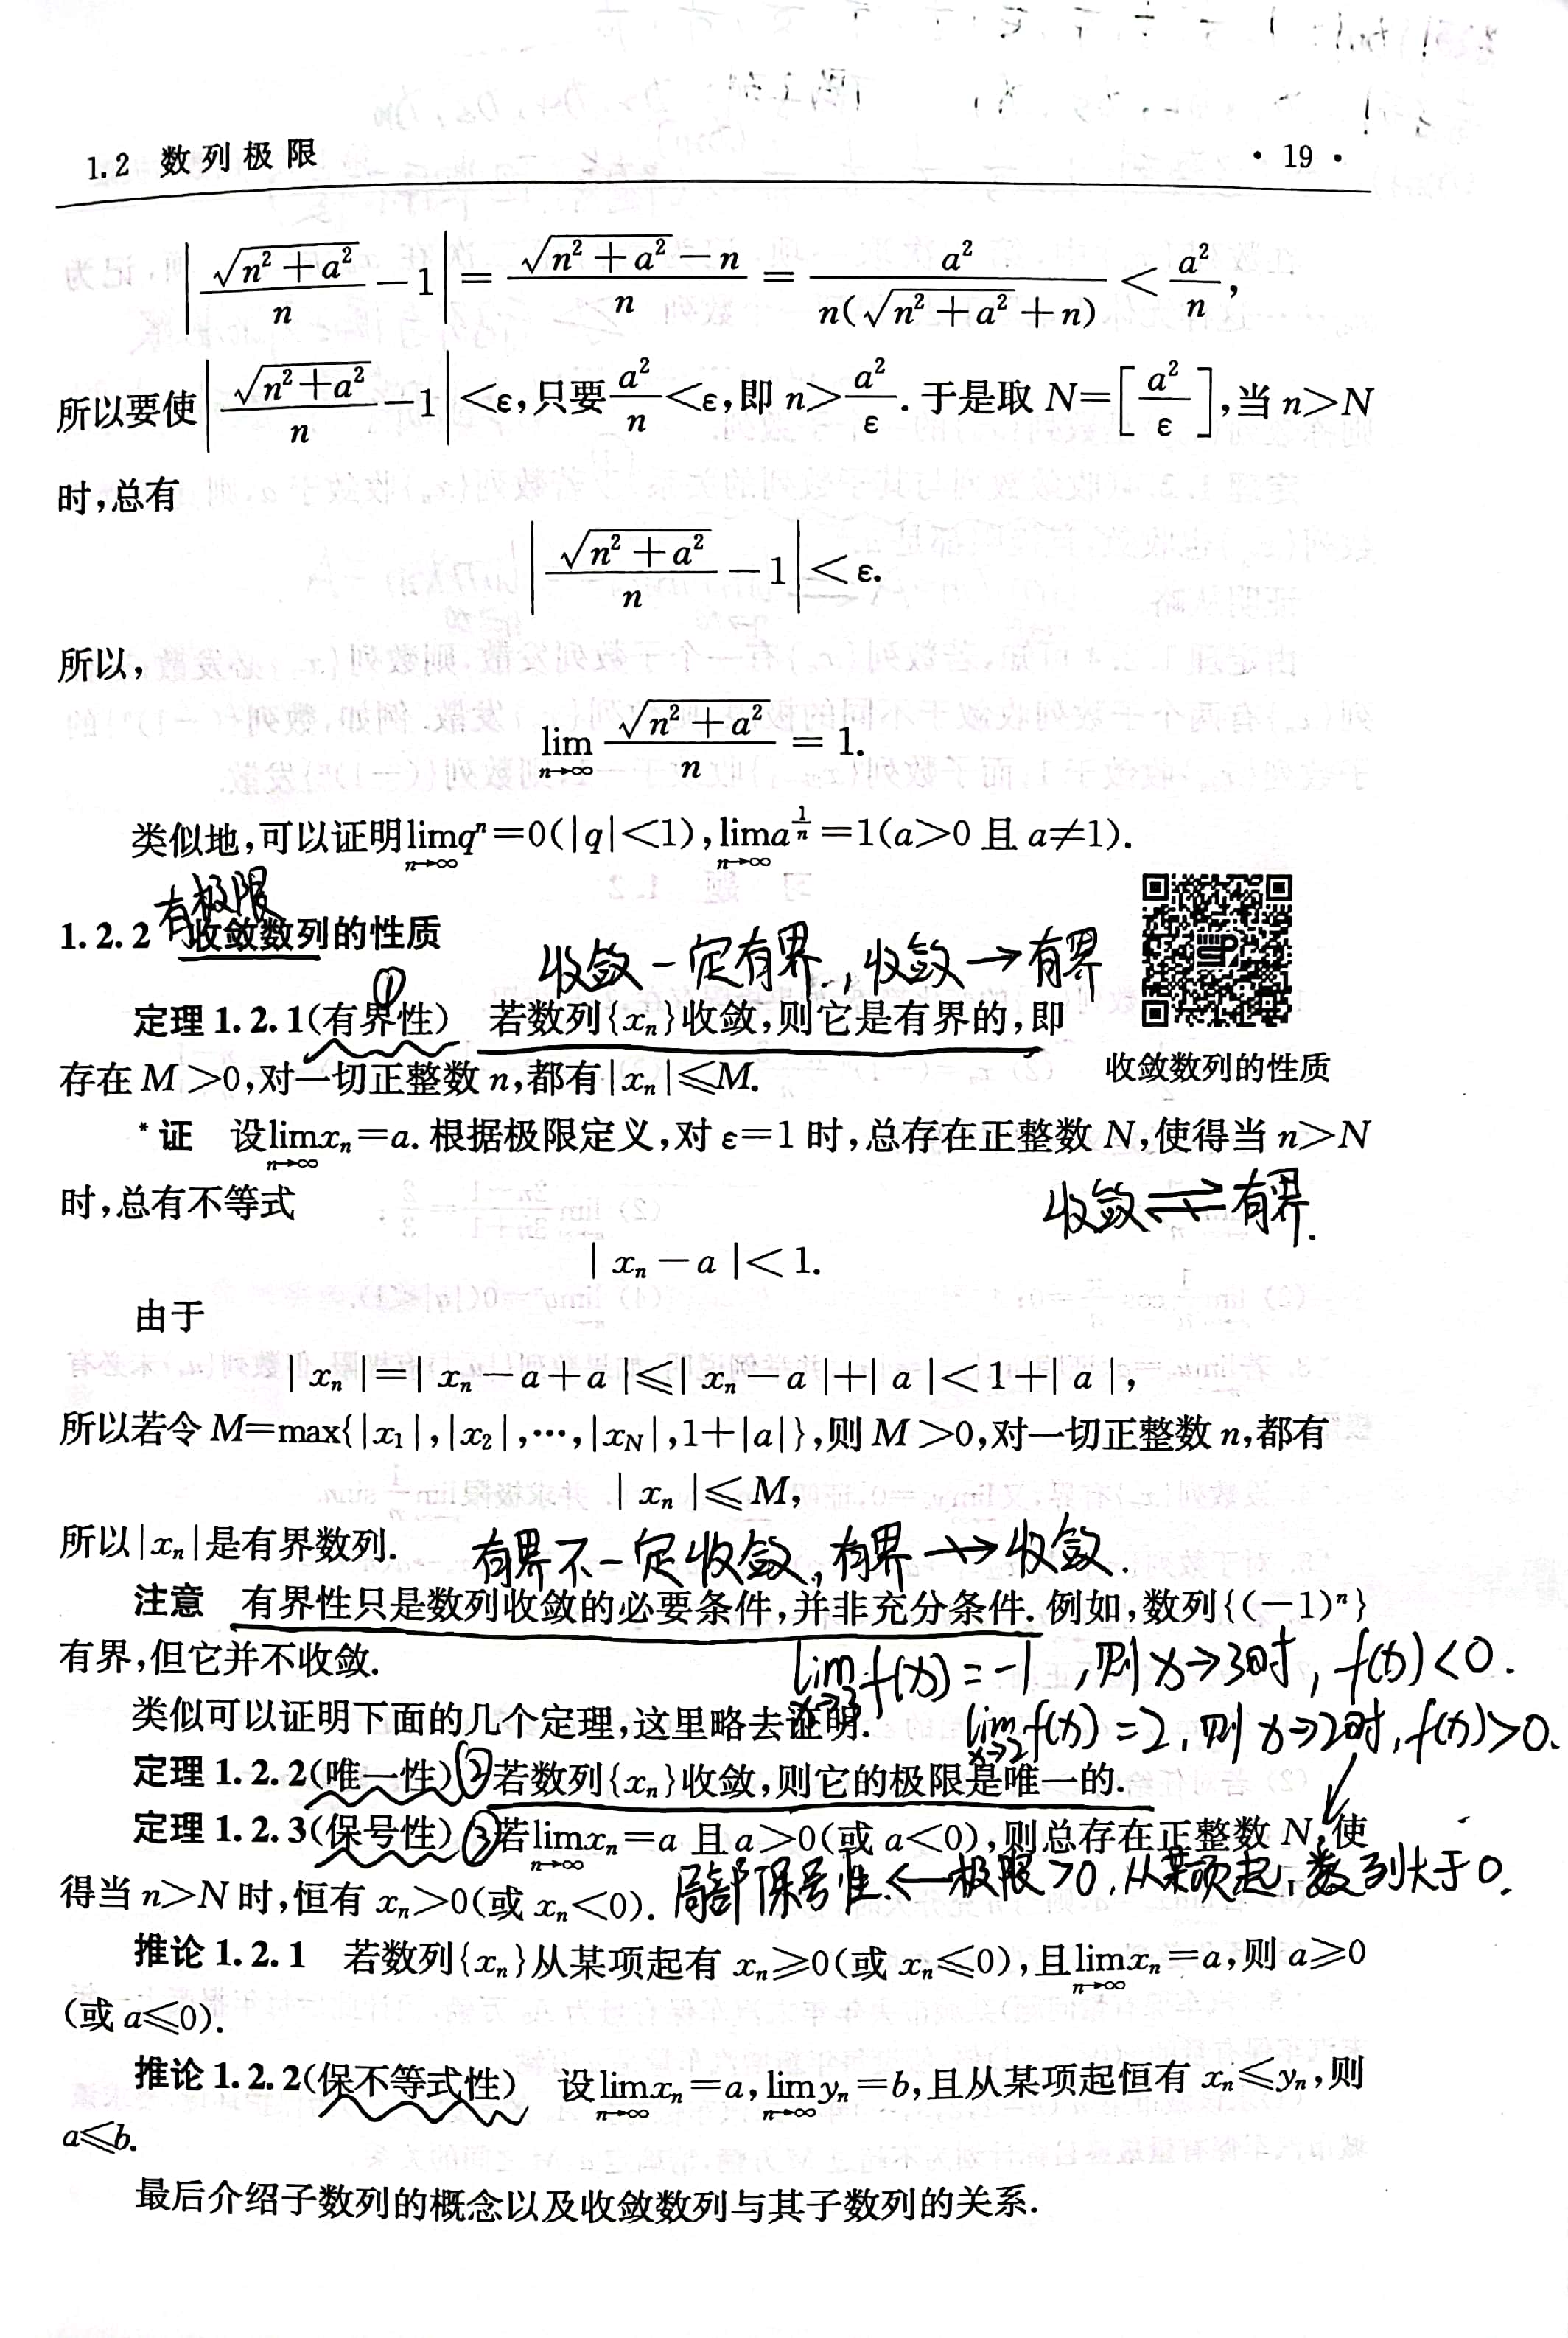 1.2 数列极限
· 19 ·
|√(n²+a²)/n −1| = (√(n²+a²)−n)/n = a²/(n(√(n²+a²)+n)) < a²/n,
所以要使|√(n²+a²)/n −1|<ε,只要a²/n<ε,即 n>a²/ε.于是取 N=[a²/ε],当 n>N
时,总有
|√(n²+a²)/n −1|<ε.
所以,
lim_{n→∞} √(n²+a²)/n = 1.
类似地,可以证明lim_{n→∞}qⁿ=0(|q|<1),lim_{n→∞}a^{1/n}=1(a>0 且 a≠1).
有极限
1.2.2 收敛数列的性质
收敛一定有界.,收敛→有界
①
定理 1.2.1(有界性) 若数列{xₙ}收敛,则它是有界的,即
存在 M>0,对一切正整数 n,都有|xₙ|≤M.
收敛数列的性质
*证 设lim_{n→∞}xₙ=a.根据极限定义,对 ε=1 时,总存在正整数 N,使得当 n>N
时,总有不等式
收敛⇌有界.
|xₙ−a|<1.
由于
|xₙ|=|xₙ−a+a|≤|xₙ−a|+|a|<1+|a|,
所以若令 M=max{|x₁|,|x₂|,…,|x_N|,1+|a|},则 M>0,对一切正整数 n,都有
|xₙ|≤M,
所以|xₙ|是有界数列.
有界不一定收敛,有界↛收敛.
注意 有界性只是数列收敛的必要条件,并非充分条件.例如,数列{(−1)ⁿ}
有界,但它并不收敛.
lim_{x→3}f(x)=−1,则x→3时,f(x)<0.
类似可以证明下面的几个定理,这里略去证明.
lim_{x→2}f(x)=2,则x→2时,f(x)>0.
定理 1.2.2(唯一性)②若数列{xₙ}收敛,则它的极限是唯一的.
定理 1.2.3(保号性)③若lim_{n→∞}xₙ=a 且 a>0(或 a<0),则总存在正整数 N,使
得当 n>N 时,恒有 xₙ>0(或 xₙ<0).
局部保号性←极限>0,从某项起,数列大于0.
推论 1.2.1 若数列{xₙ}从某项起有 xₙ≥0(或 xₙ≤0),且lim_{n→∞}xₙ=a,则 a≥0
(或 a≤0).
推论 1.2.2(保不等式性) 设lim_{n→∞}xₙ=a,lim_{n→∞}yₙ=b,且从某项起恒有 xₙ≤yₙ,则
a≤b.
最后介绍子数列的概念以及收敛数列与其子数列的关系.